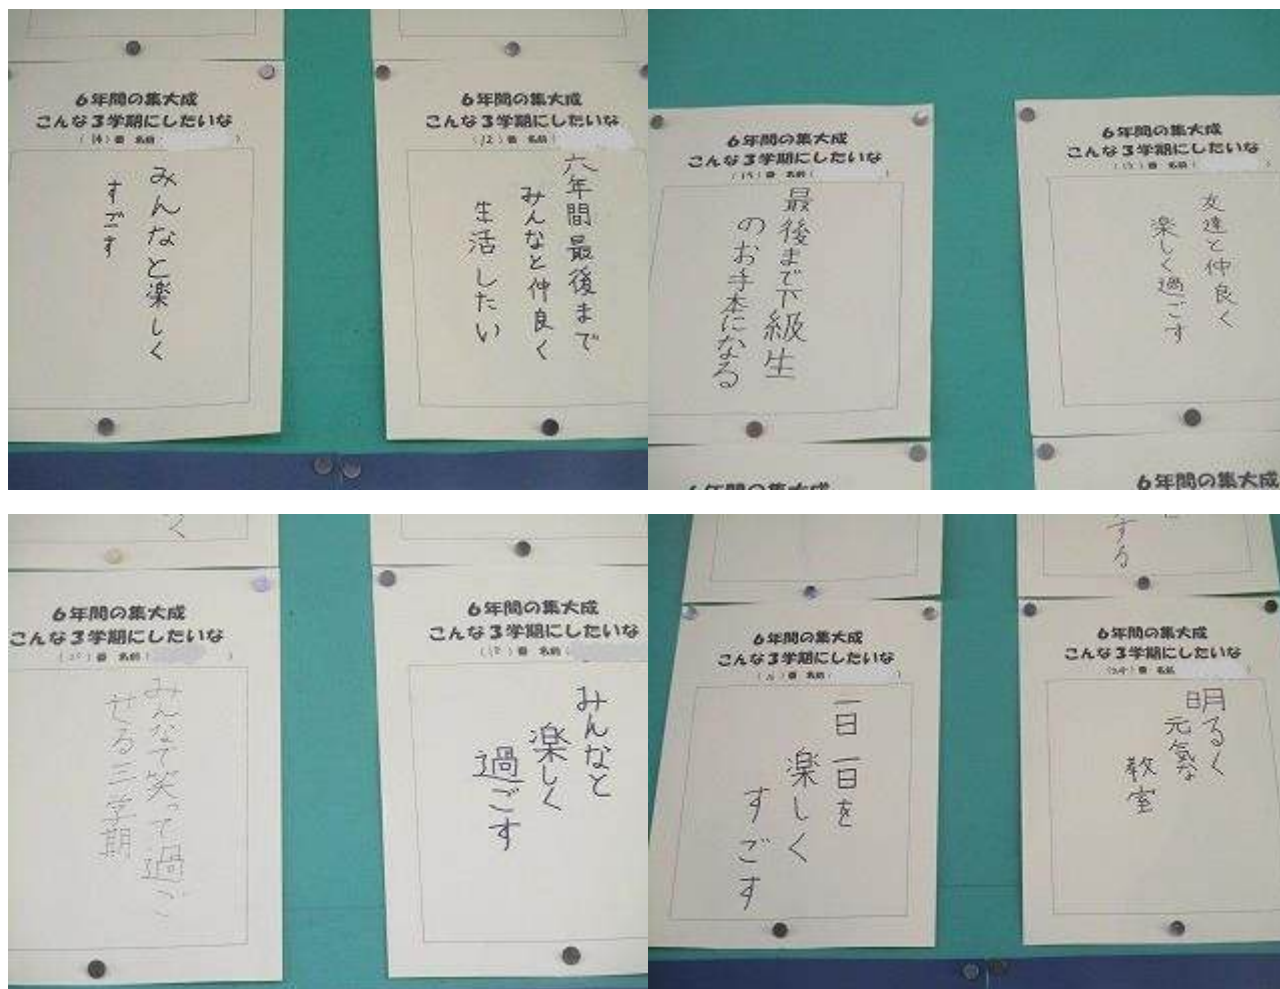 6年間の集大成
こんな3学期にしたいな
(14)番 名前( )
みんなと楽しく
すごす
6年間の集大成
こんな3学期にしたいな
(12)番 名前(
六年間最後まで
みんなと仲良く
生活したい
6年間の集大成
こんな3学期にしたいな
番 名前( )
最後まで下級生
のお手本になる
6年間の集大成
こんな3学期にしたいな
番 名前( )
友達と仲良く
楽しく過ごす
6年間の集大成
6年間の集大成
く
6年間の集大成
こんな3学期にしたいな
番 名前( )
みんなで笑って過ご
せる三学期
6年間の集大成
こんな3学期にしたいな
番 名前(
みんなと
楽しく
過ごす
6年間の集大成
こんな3学期にしたいな
番 名前( )
一日一日を
楽しく
すごす
する
6年間の集大成
こんな3学期にしたいな
番 名前
明るく
元気な
教室